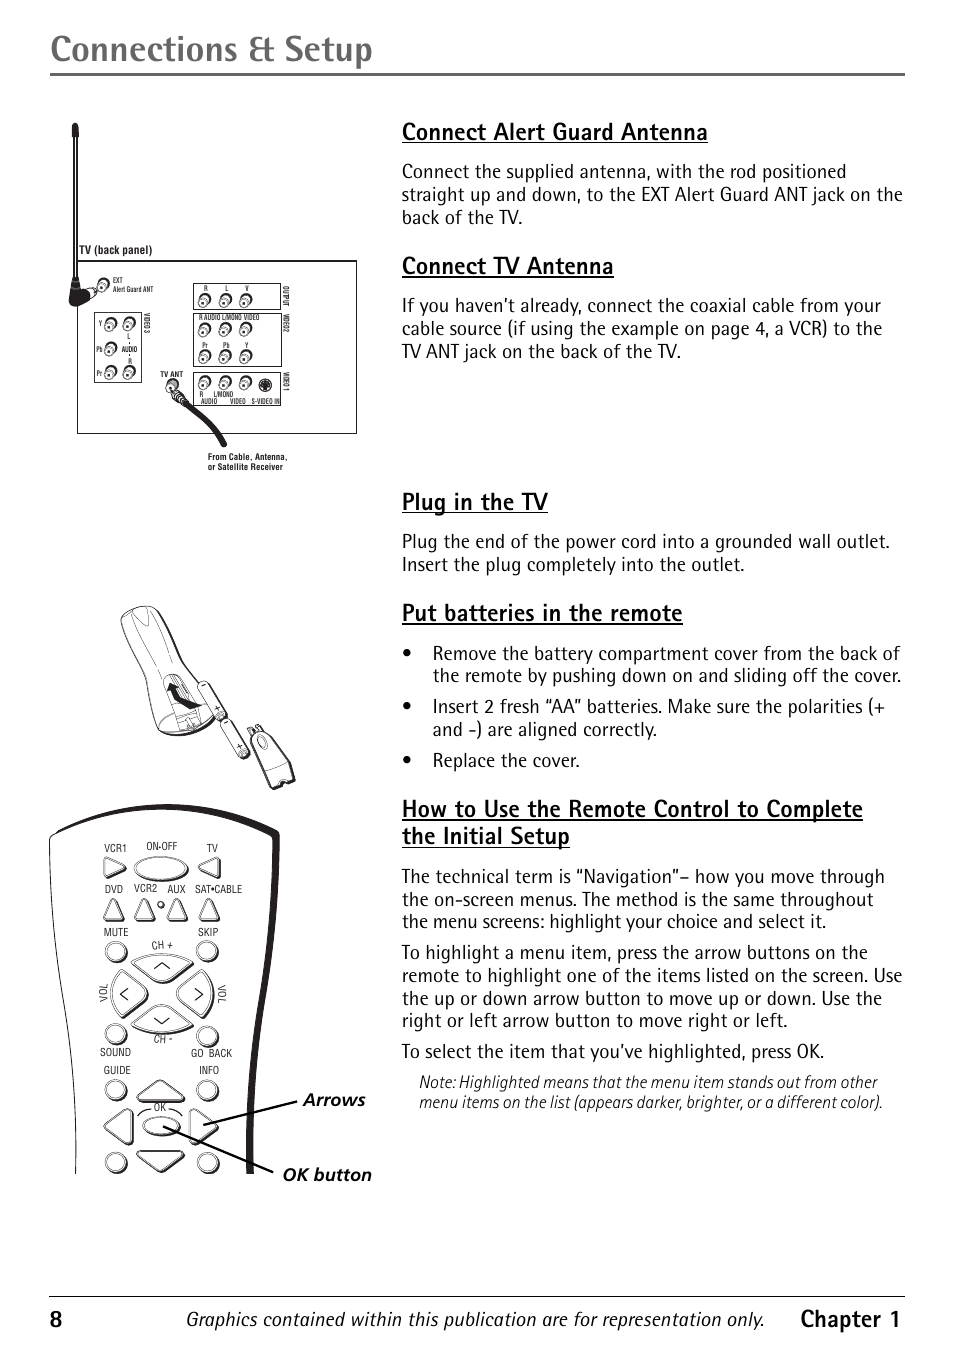 Connections & Setup
TV (back panel)
EXT
Alert Guard ANT
R L V
OUTPUT
R AUDIO L/MONO VIDEO
VIDEO2
Pr Pb Y
VIDEO 1
R L/MONO
AUDIO VIDEO S-VIDEO IN
Y
VIDEO 3
L
Pb AUDIO
R
Pr
TV ANT
From Cable, Antenna,
or Satellite Receiver
VCR1 ON•OFF TV
DVD VCR2 AUX SAT•CABLE
MUTE SKIP
CH +
VOL VOL
CH -
SOUND GO BACK
GUIDE INFO
OK
Arrows
OK button
Connect Alert Guard Antenna
Connect the supplied antenna, with the rod positioned
straight up and down, to the EXT Alert Guard ANT jack on the
back of the TV.
Connect TV Antenna
If you haven’t already, connect the coaxial cable from your
cable source (if using the example on page 4, a VCR) to the
TV ANT jack on the back of the TV.
Plug in the TV
Plug the end of the power cord into a grounded wall outlet.
Insert the plug completely into the outlet.
Put batteries in the remote
• Remove the battery compartment cover from the back of
the remote by pushing down on and sliding off the cover.
• Insert 2 fresh “AA” batteries. Make sure the polarities (+
and -) are aligned correctly.
• Replace the cover.
How to Use the Remote Control to Complete
the Initial Setup
The technical term is “Navigation”– how you move through
the on-screen menus. The method is the same throughout
the menu screens: highlight your choice and select it.
To highlight a menu item, press the arrow buttons on the
remote to highlight one of the items listed on the screen. Use
the up or down arrow button to move up or down. Use the
right or left arrow button to move right or left.
To select the item that you’ve highlighted, press OK.
Note: Highlighted means that the menu item stands out from other
menu items on the list (appears darker, brighter, or a different color).
8 Graphics contained within this publication are for representation only. Chapter 1